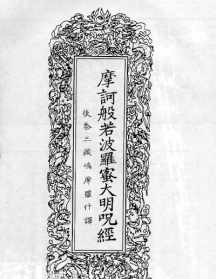 摩訶般若波羅蜜大明呪經
後秦三藏鳩摩羅什譯